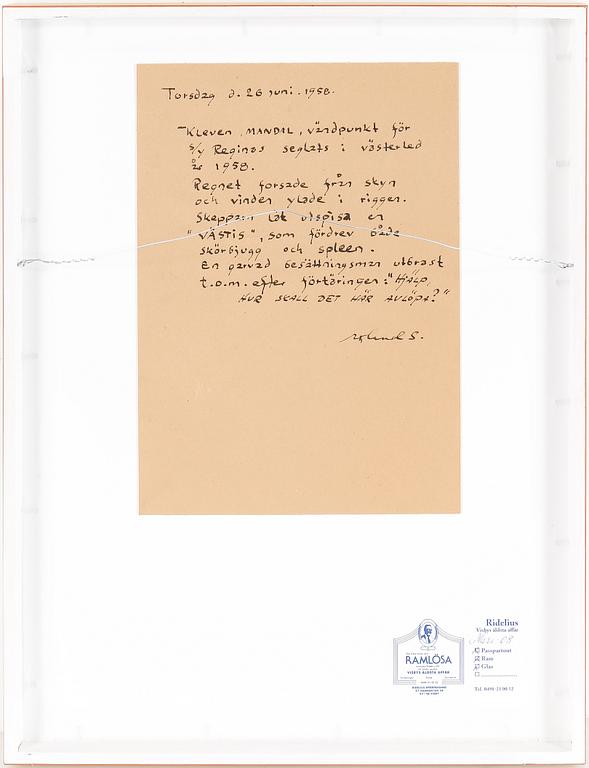 Torsdag d. 26 juni. 1958.
Kleven, MANDAL, vändpunkt för
s/y Reginas seglats i västerled
år 1958.
Regnet forsade från skyn
och vinden ylade i riggen.
Skepparn lät utspisa en
"VÄSTIS", som fördrev både
skörbjugg och spleen.
En garvad besättningsman utbrast
t.o.m. efter förtäringen: "HJÄLP,
HUR SKALL DET HÄR AVLÖPA?"
S.
Ridelius
Visbys äldsta affär
Mars -08
Passpartout
Ram
Glas
Tel. 0498-21 00 12
RAMLÖSA
VISBYS ÄLDSTA AFFÄR